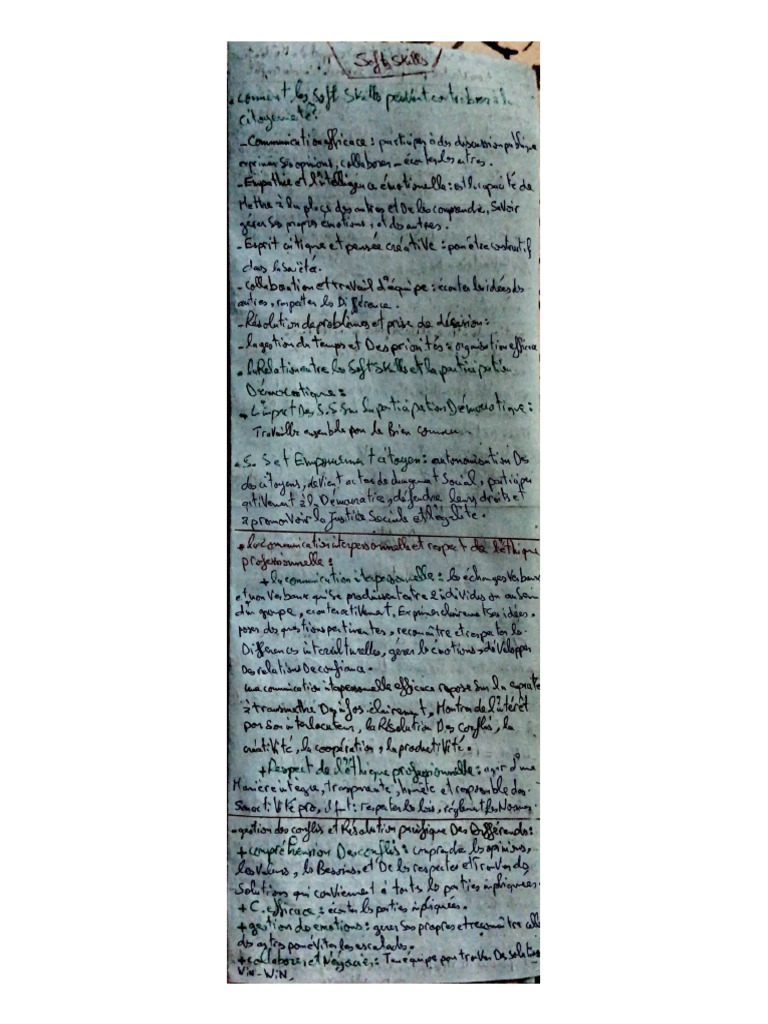 Soft Skills
• Comment les Soft Skills peuvent contribuer à la
citoyenneté?
- Communication efficace : participer à des discussion publique
exprimer ses opinions, collaborer - écouter les autres.
- Empathie et l'intelligence émotionelle : est la capacité de
Mettre à la place des autres et De les comprendre, Savoir
gérer ses propres émotions, et des autres.
- Esprit critique et pensée créative : pour être constructif
dans la société.
- Collaboration et travail d'équipe : écouter les idées des
autres, respecter les Différence.
- Résolution de problèmes et prise de décision :
- la gestion du temps et Des priorités : organisation efficace
• la Relation entre les Soft Skills et la participation
Démocratique :
L'impact Des S.S Sur la participation Démocratique :
Travailler ensemble pour le Bien commun
• S. S et Empowerment citoyen : autonomisation Des
des citoyens, devient acteur de changement Social, participer
activement à la Démocratie, défendre leurs droits et
à promouvoir la Justice Sociale et l'égalité.
+ la communication interpersonnelle et respect de l'éthique
professionnelle :
+ la communication interpersonnelle : les échanges verbaux
et non verbaux qui se produisent entre individus ou au sein
d'un groupe, écouter activement, Exprimer clairement ses idées.
poser des questions pertinentes, reconnaître et respecter les
Différences interculturelles, gérer les émotions, développer
Des relations De confiance.
une communication interpersonnelle efficace repose sur la capacité
à transmettre Des infos clairement, Montrer de l'intérêt
pour son interlocuteur, la Résolution Des conflits, la
créativité, la coopération, la productivité.
+ Respect de l'éthique professionnelle : agir d'une
Manière intègre, transparente, honnête et responsable des
Son activité pro, il faut : respecter les lois, règlement, les Normes.
- gestion des conflits et Résolution pacifique Des Différends :
+ compréhension Des conflits : comprendre les opinions,
les Valeurs, les Besoins, et De les respecter et Trouver des
Solutions qui conviennent à toutes les parties impliquées.
+ C. efficace : écouter les parties impliquées.
+ gestion des émotions : gérer ses propres et reconnaître celles
des autres pour éviter les escalades.
+ collaborer et Négocier : en équipe pour trouver Des solutions
Win-Win.